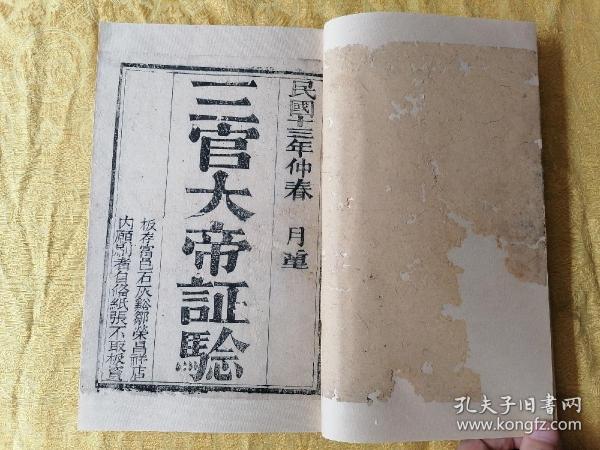 民國十三年仲春 月重
三官大帝証驗
板存富邑石灰谿鄒榮昌祥店
内願刷者自俻紙張不取板資
孔夫子旧书网
www.kongfz.com